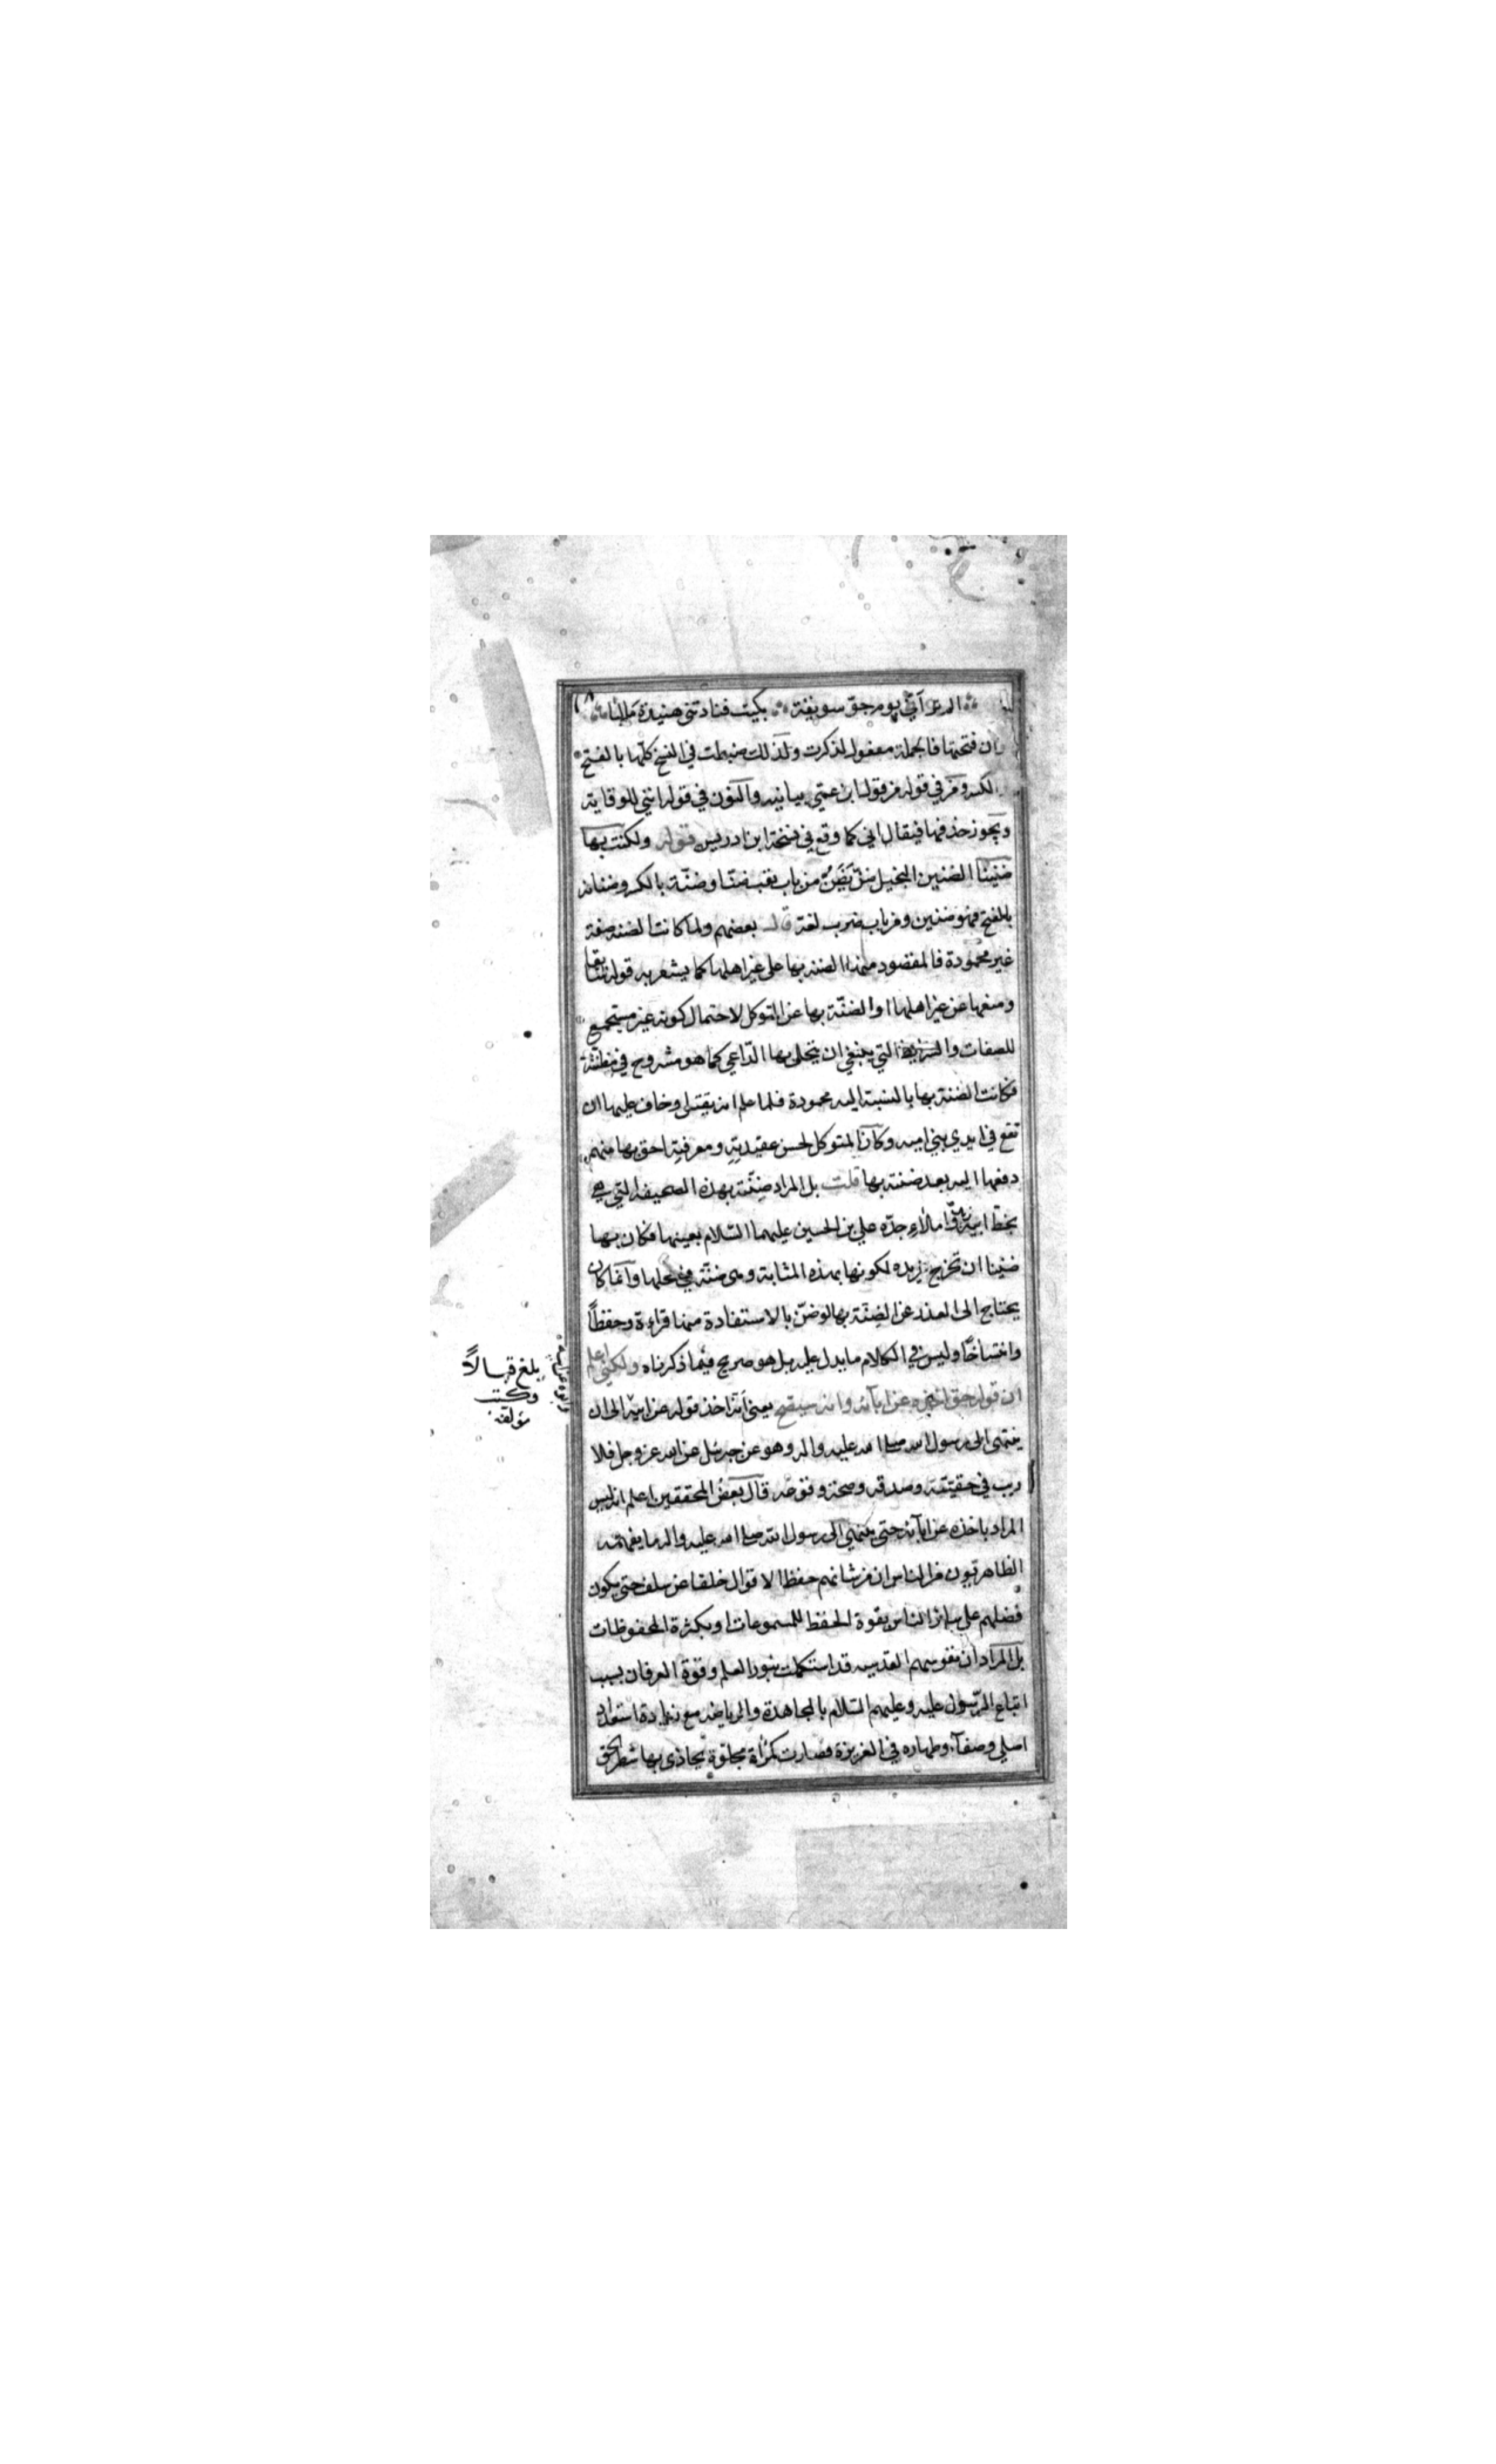 الم تر أني يوم جو سويقة بكيت فنادتني هنيدة ماليا
وان فتحتها فالجملة مفعول لذكرت ولذلك ضبطت في النسخ كلها بالفتح
الكسر ومن في قوله من قول ابن عمتي بيانيه والنون في قوله انني للوقاية
ويجوز حذفها فيقال اني كما وقع في نسخة ابن ادريس قوله ولكنت بها
ضنينا الضنين البخيل ضن يضن من باب تعب ضنا وضنة بالكسر وضنانه
بالفتح فهو ضنين ومن باب ضرب لغة قال بعضهم ولما كانت الضنة صفة
غير محمودة فالمقصود منها الضنة بها على غير اهلها كما يشعر به قوله سابقا
ومنعها عن غير اهلها او الضنة بها عن المتوكل لاحتمال كونه غير مستجمع
للصفات والشرايط التي ينبغي ان يتحلى بها الداعي كما هو مشروح في مظنته
فكانت الضنة بها بالنسبة اليه محمودة فلما علم انه يقتل وخاف عليها ان
تقع في ايدي بني اميه وكان المتوكل لحسن عقيدته ومعرفته احق بها منهم
دفعها اليه بعد ضنته بها قلت بل المراد ضنته بهذه الصحيفة التي هي
بخط ابيه واملاء جده علي بن الحسين عليهما السلام بعينها فكان بها
ضنينا ان تخرج من يده لكونها بهذه المثابة وهي ضنة في محلها وانما كان
يحتاج الى العذر عن الضنة بها لو ضن بالاستفادة منها قراءة وحفظا
وانتساخا وليس في الكلام ما يدل عليه بل هو صريح فيما ذكرناه ولكني اعلم
ان قوله حق اخذه عن ابآئه وانه سيصح يعني انه اخذ قوله عن ابيه الى ان
ينتهي الى رسول الله صلى الله عليه واله وهو عن جبرئيل عن الله عز وجل فلا
ريب في حقيقته وصدقه وصحته وقوعه قال بعض المحققين اعلم انه ليس
المراد باخذه عن ابآئه حتى ينتهي الى رسول الله صلى الله عليه واله ما يفهمه
الظاهريون من الناس ان من شانهم حفظ الاقوال خلفا عن سلف حتى يكون
فضلهم على سائر الناس بقوة الحفظ للمسموعات او بكثرة المحفوظات
بل المراد ان نفوسهم القدسيه قد استكملت بنور العلم وقوة العرفان بسبب
اتباع الرسول عليه وعليهم السلام بالمجاهدة والرياضه مع زيادة استعداد
اصلي وصفآء وطهاره في الغريزة فصارت كمرأة مجلوة يحاذي بها شطر الحق
بلغ قبالاً
وكتب
مؤلفه